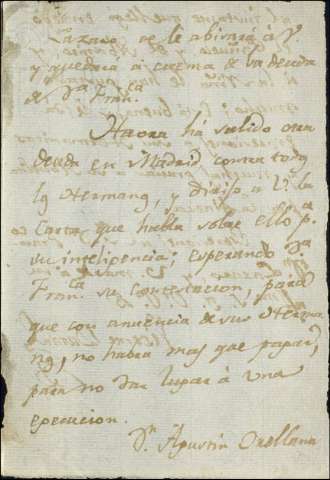 Lazaro se le abisará á V.
y quedará á cuenta de la deuda
de D.ª Fran.ca
Haora há salido otra
deuda en Madrid contra todos
los Hermanos, y dirijo a V. la
Carta que habla sobre ello p.ª
su inteligencia; esperando D.ª
Fran.ca su contestacion, para
que con anuencia de sus Herma
nos, no habra mas que pagar,
para no dar lugar á una
egecucion.
D.n Agustin Orellana